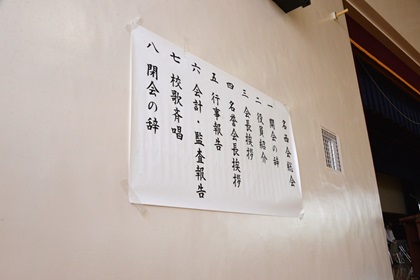 名西会総会
一 開会の辞
二 役員紹介
三 会長挨拶
四 名誉会長挨拶
五 行事報告
六 会計・監査報告
七 校歌斉唱
八 閉会の辞